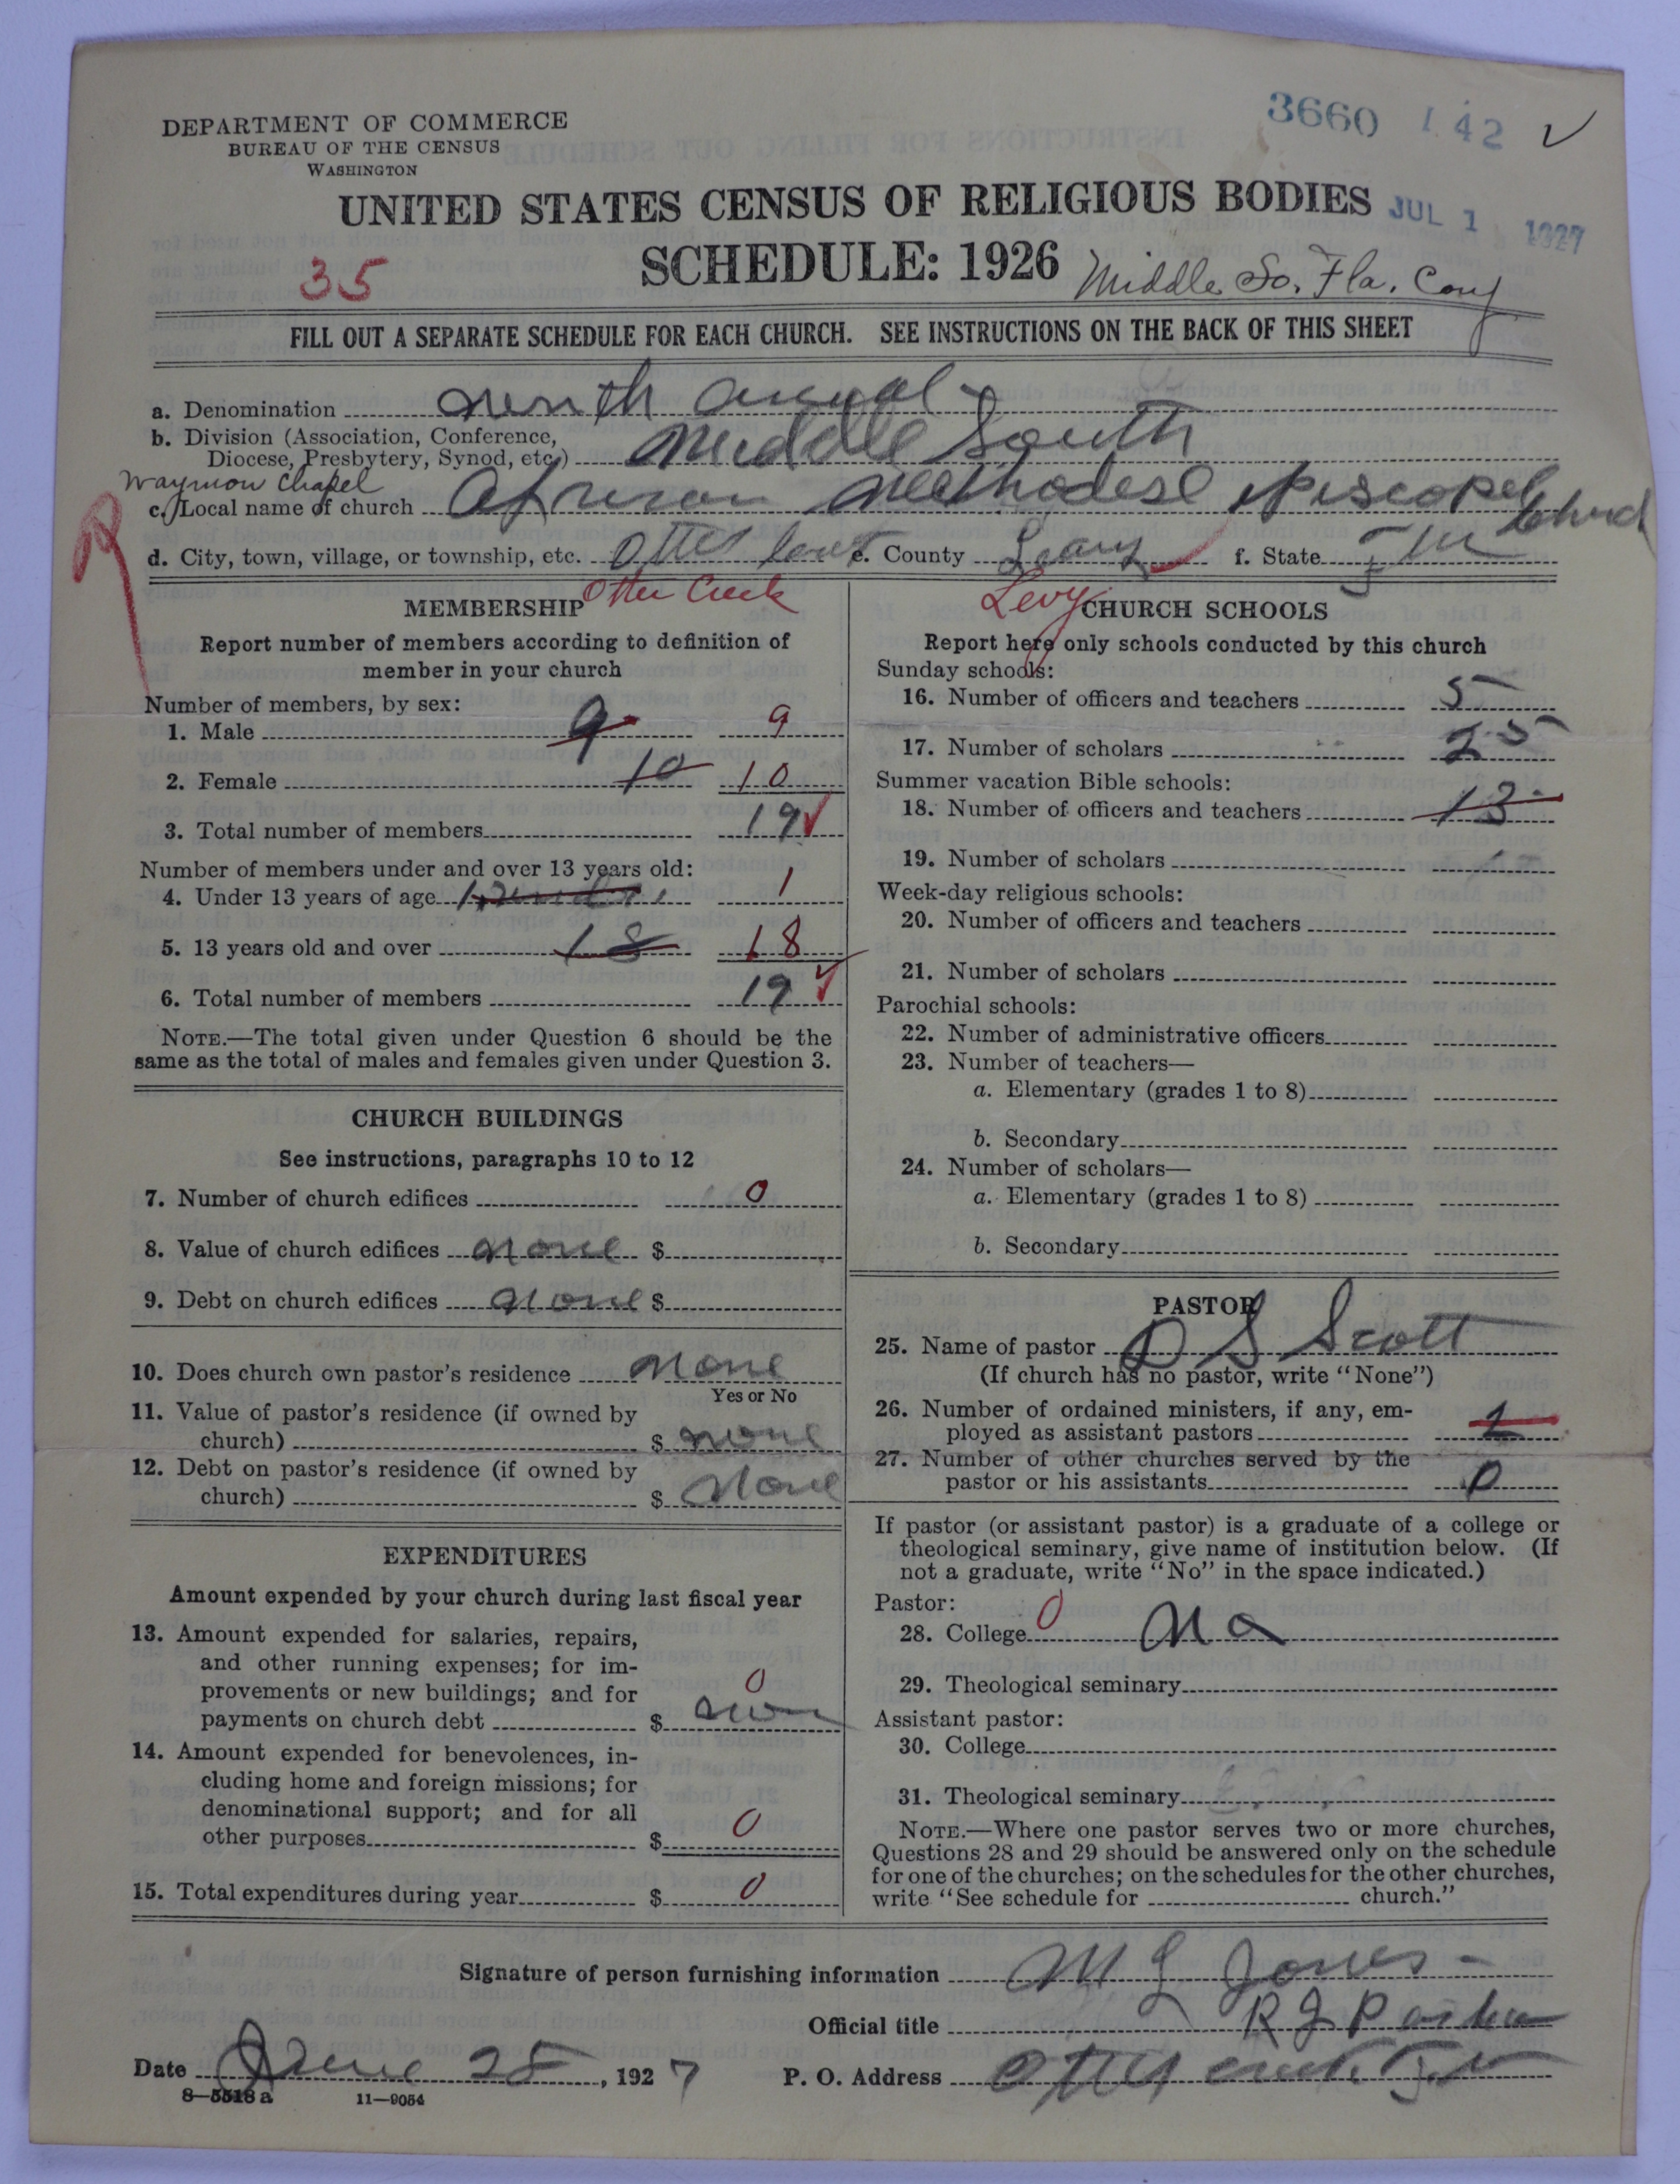 3660 142 ✓
DEPARTMENT OF COMMERCE
BUREAU OF THE CENSUS
WASHINGTON
UNITED STATES CENSUS OF RELIGIOUS BODIES
JUL 1 1927
SCHEDULE: 1926
35
Middle So. Fla. Conf
FILL OUT A SEPARATE SCHEDULE FOR EACH CHURCH. SEE INSTRUCTIONS ON THE BACK OF THIS SHEET
a. Denomination
b. Division (Association, Conference,
Diocese, Presbytery, Synod, etc.) Middle South
Waymon Chapel
c. Local name of church Episcopel Church
d. City, town, village, or township, etc. e. County f. State
Otter Creek
Levy
MEMBERSHIP
Report number of members according to definition of
member in your church
Number of members, by sex:
1. Male 9 9
2. Female 10 10
3. Total number of members 19 ✓
Number of members under and over 13 years old:
4. Under 13 years of age 1
5. 13 years old and over 18 18
6. Total number of members 19 ✓
NOTE.—The total given under Question 6 should be the
same as the total of males and females given under Question 3.
CHURCH BUILDINGS
See instructions, paragraphs 10 to 12
7. Number of church edifices 0
8. Value of church edifices none $
9. Debt on church edifices none $
10. Does church own pastor's residence none
Yes or No
11. Value of pastor's residence (if owned by
church) $ none
12. Debt on pastor's residence (if owned by
church) $ none
EXPENDITURES
Amount expended by your church during last fiscal year
13. Amount expended for salaries, repairs,
and other running expenses; for im-
provements or new buildings; and for
payments on church debt $ 0
14. Amount expended for benevolences, in-
cluding home and foreign missions; for
denominational support; and for all
other purposes $ 0
15. Total expenditures during year $ 0
CHURCH SCHOOLS
Report here only schools conducted by this church
Sunday schools:
16. Number of officers and teachers 5
17. Number of scholars 25
Summer vacation Bible schools:
18. Number of officers and teachers 13
19. Number of scholars
Week-day religious schools:
20. Number of officers and teachers
21. Number of scholars
Parochial schools:
22. Number of administrative officers
23. Number of teachers—
a. Elementary (grades 1 to 8)
b. Secondary
24. Number of scholars—
a. Elementary (grades 1 to 8)
b. Secondary
PASTOR
25. Name of pastor D S Scott
(If church has no pastor, write "None")
26. Number of ordained ministers, if any, em-
ployed as assistant pastors 1
27. Number of other churches served by the
pastor or his assistants 0
If pastor (or assistant pastor) is a graduate of a college or
theological seminary, give name of institution below. (If
not a graduate, write "No" in the space indicated.)
Pastor:
28. College 0 No
29. Theological seminary
Assistant pastor:
30. College
31. Theological seminary
NOTE.—Where one pastor serves two or more churches,
Questions 28 and 29 should be answered only on the schedule
for one of the churches; on the schedules for the other churches,
write "See schedule for church."
Signature of person furnishing information M L Jones
Official title
Date June 28, 1927 P. O. Address
8—5518 a 11—9054